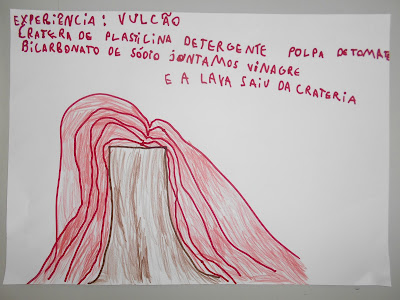 EXPERIÊNCIA: VULCÃO
CRATERA DE PLASTICINA DETERGENTE POLPA DE TOMATE
BICARBONATO DE SÓDIO JONTAMOS VINAGRE
E A LAVA SAIU DA CRATERIA